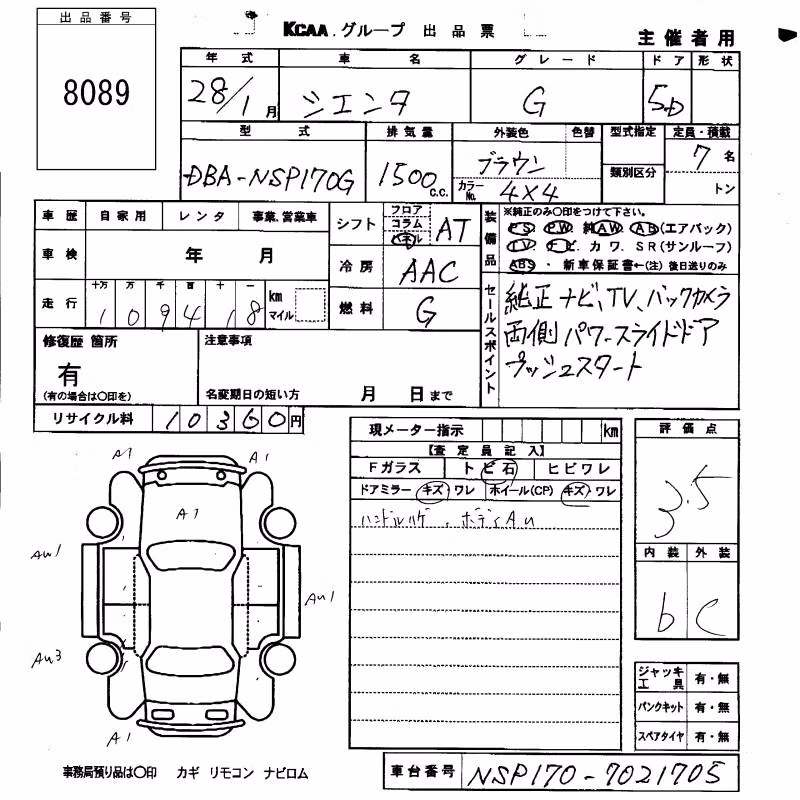 出品番号
8089
KCAA グループ 出品票
主催者用
年式 車名 グレード ドア 形状
28/1月 シエンタ G 5D
型式 排気量 外装色 色替 型式指定 定員・積載
DBA-NSP170G 1500 C.C. ブラウン 7名
類別区分
カラーNo. 4X4 トン
車歴 自家用 レンタ 事業、営業車
車検 年 月
走行 十万 万 千 百 十 一
1 0 9 4 1 8 km マイル
シフト フロア コラム パネル AT
冷房 AAC
燃料 G
装備品
※純正のみ○印をつけて下さい。
PS PW 純AW AB(エアバック)
TV. ナビ. カワ. SR(サンルーフ)
ABS・新車保証書←(注)後日送りのみ
セールスポイント
純正ナビ、TV、バックカメラ
両側パワースライドドア
プッシュスタート
修復歴 箇所
有
(有の場合は○印を)
注意事項
名変期日の短い方 月 日まで
リサイクル料 10360円
現メーター指示 km
【査定員記入】
Fガラス トビ石 ヒビワレ
ドアミラー キズ ワレ ホイール(CP) キズ ワレ
ハンドルハゲ、ボディAU
評価点
3.5
内装 外装
b C
A1 A1
A1
AU1
AU1
AU3
A1
ジャッキ 工具 有・無
パンクキット 有・無
スペアタイヤ 有・無
事務局預り品は○印 カギ リモコン ナビロム
車台番号 NSP170-7021705